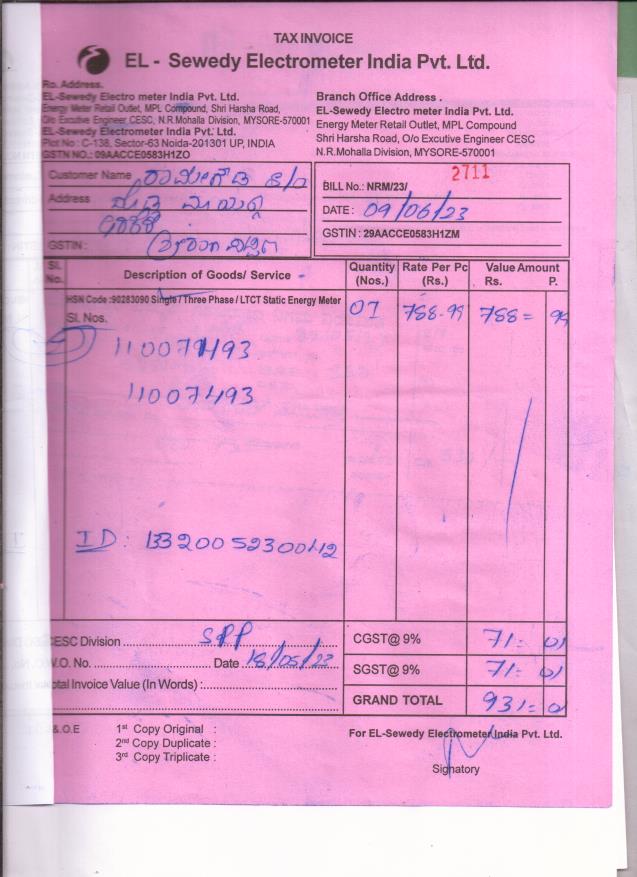 TAX INVOICE
EL - Sewedy Electrometer India Pvt. Ltd.
Ro. Address.
EL-Sewedy Electro meter India Pvt. Ltd.
Energy Meter Retail Outlet, MPL Compound, Shri Harsha Road,
O/o Excutive Engineer CESC, N.R.Mohalla Division, MYSORE-570001
EL-Sewedy Electrometer India Pvt. Ltd.
Plot No : C-138, Sector-63 Noida-201301 UP, INDIA
GSTN NO.: 09AACCE0583H1ZO
Branch Office Address .
EL-Sewedy Electro meter India Pvt. Ltd.
Energy Meter Retail Outlet, MPL Compound
Shri Harsha Road, O/o Excutive Engineer CESC
N.R.Mohalla Division, MYSORE-570001
Customer Name
Address
GSTIN :
2711
BILL No.: NRM/23/
DATE : 09/06/23
GSTIN : 29AACCE0583H1ZM
Sl. No. Description of Goods/ Service Quantity (Nos.) Rate Per Pc (Rs.) Value Amount Rs. P.
HSN Code :90283090 Single / Three Phase / LTCT Static Energy Meter 01 788.99 788= 99
Sl. Nos.
11007493
ID : 
CESC Division SRP
W.O. No. Date
Total Invoice Value (In Words) :
CGST@ 9% 71= 01
SGST@ 9% 71= 01
GRAND TOTAL 931= 0
& O.E
1st Copy Original :
2nd Copy Duplicate :
3rd Copy Triplicate :
For EL-Sewedy Electrometer India Pvt. Ltd.
Signatory